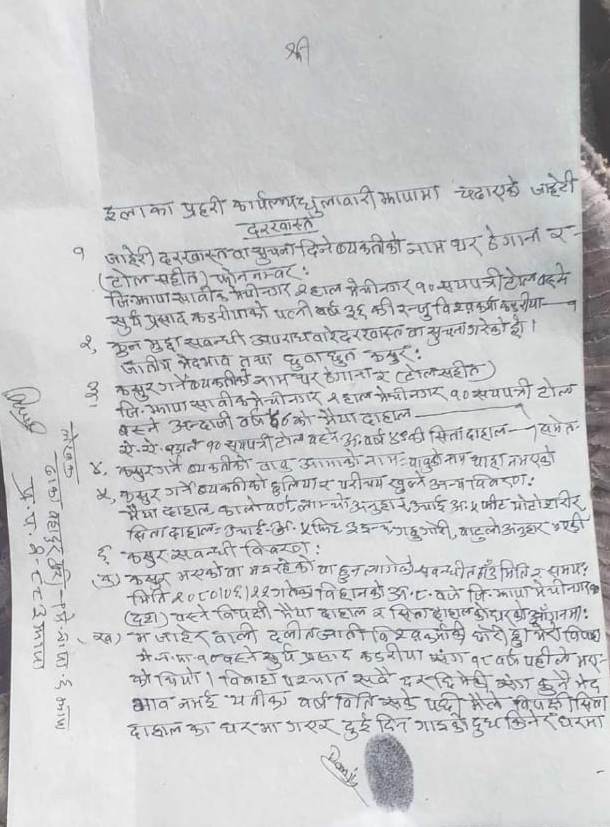 श्री
इलाका प्रहरी कार्यालय धुलावारी झापामा चढाएको जाहेरी
दरखास्त
१ जाहेरी दरखास्त वा सुचना दिने व्यक्तीको नाम थर ठेगाना र
(टोल सहीत) फोन नम्वर:
जि.झापा साविक मेचीनगर २ हाल मेचीनगर १० सयपत्री टोल वस्ने
सुर्य प्रसाद कडरीयाको पत्नी वर्ष ३६ की रन्जु विश्वकर्मा कडरीया—१
२, कुन मुद्दा सवन्धी अपराध वारे दरखास्त वा सुचना गरेको हो।
जातीय भेदभाव तथा छुवाछुत कसुर:
३। कसुर गर्ने व्यक्तीको नाम थर ठेगाना र (टोल सहीत)
जि.झापा साविक मेचीनगर २ हाल मेचीनगर १० सयपत्री टोल
वस्ने अन्दाजी वर्ष को मैया दाहाल—१
ऐ.ऐ. १० सयपत्री टोल वस्ने अ.वर्ष की सिता दाहाल—१ समेत
४. कसुर गर्ने व्यक्तीको वावु आमाको नाम: वावुको नाम थाहा नभएको
५, कसुर गर्ने व्यक्तीको हुलिया र परीचय खुल्ने अन्य विवरण:
मैया दाहाल, कालो वर्ण, लाम्चो अनुहार, उचाई अ. ५ फिट मोटो शरीर,
सिता दाहाल: उचाई अ. ५ फिट इन्च गहु गोरी, वाटुलो अनुहार
६ कसुर सवन्धी विवरण:
(क) कसुर भएको वा भइरहेको वा हुन लागेको सवन्धीत ठाँउ मिति र समय:
मिति २०८०।०६।२२ गतेका विहानको अ. ८ वजे जि.झापा मेचीनगर
(दश) वस्ने विपक्षी मैया दाहाल र सिता दाहालको घरको आँगनमा:
(ख) म जाहेर वाला दलीत जाती विश्वकर्माकी छोरी हु। मेरो विवाह
मे.न.पा. १० वस्ने सुर्य प्रसाद कडरीया संग १८ वर्ष पहीले भए
को थियो। विवाह पश्चात सवै मेरो संग कुनै भेद
भाव नभई यतीका वर्ष विति सके पछी मैले विपक्षी सिता
दाहाल का घरमा गएर दुई दिन गाइको दुध किनेर घरमा